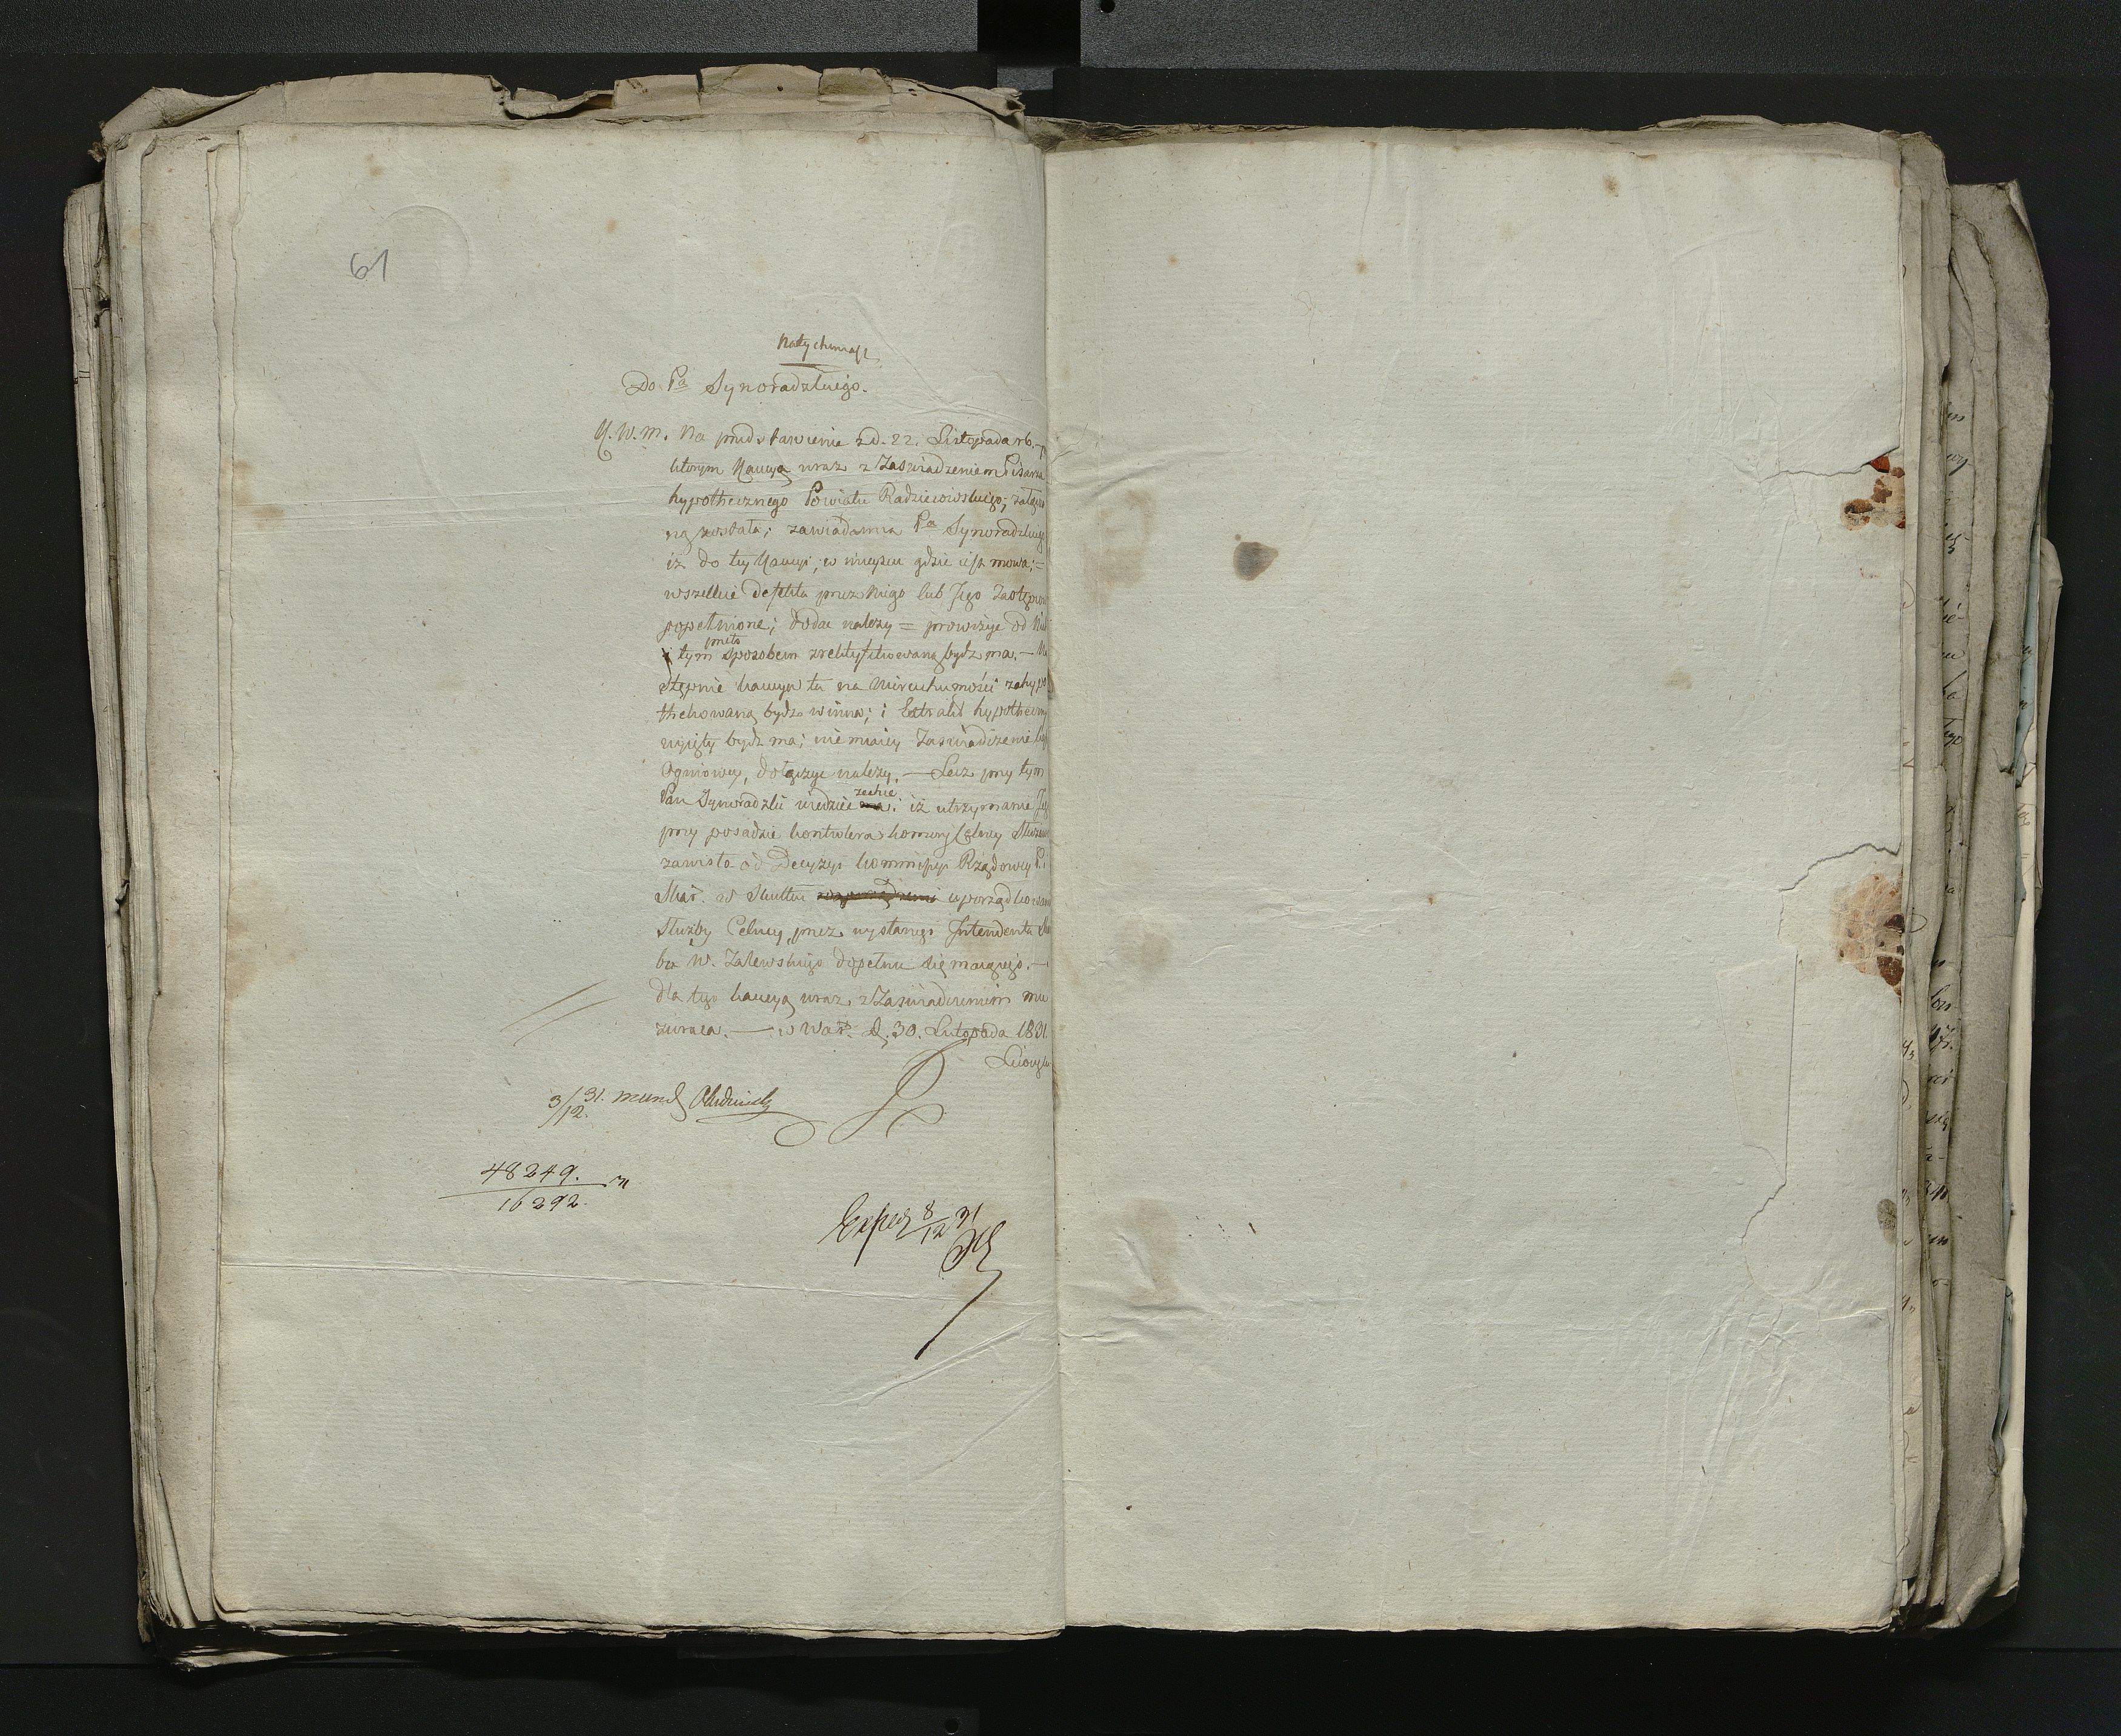 61
Natychmiast
Do Pa Synoradzkiego.
K.W.M. Na przedstawienie z d. 22. Listopada rb.
którym Kaucya wraz z Zaswiadzeniem Pisarza
hypothecznego Powiatu Radziejowskiego, załączo
ną została; zawiadamia Pa Synoradzkiego
iż do tey Kaucyi, w mieyscu gdzie jest mowa;=
wszelkie defekta przez Niego lub Jego Zastępców
popełnione; dodac należy = prowizye od
przeto
tym sposobem zrektyfikowaną bydz ma. — Na
stępnie kaucya ta na Nieruchomości zahypo
thekowaną bydz winna; i Extrakt hypotheczny
wyięty bydz ma; niemniey Zaswiadczenie
Ogniowey, dołączyc należy. — Lecz przy tym
zechce
Pan Synoradzki wiedziec ma; iż utrzymanie Jego
przy posadzie kontrolera komory Celney
zawisło od Decyzyi kommissyi Rządowey P. i
Skar. w Skutku uporządkowania
Służby Celney przez wysłanego Intendenta
W. Zalewskiego dopełnic się maiącego. —
dla tego kaucyą wraz z Zaswiadczeniem mu
zwraca. — w War. d. 30. Listopada 1831.
3/12 31. mund
48249.
16292.
Exped 8/12 31